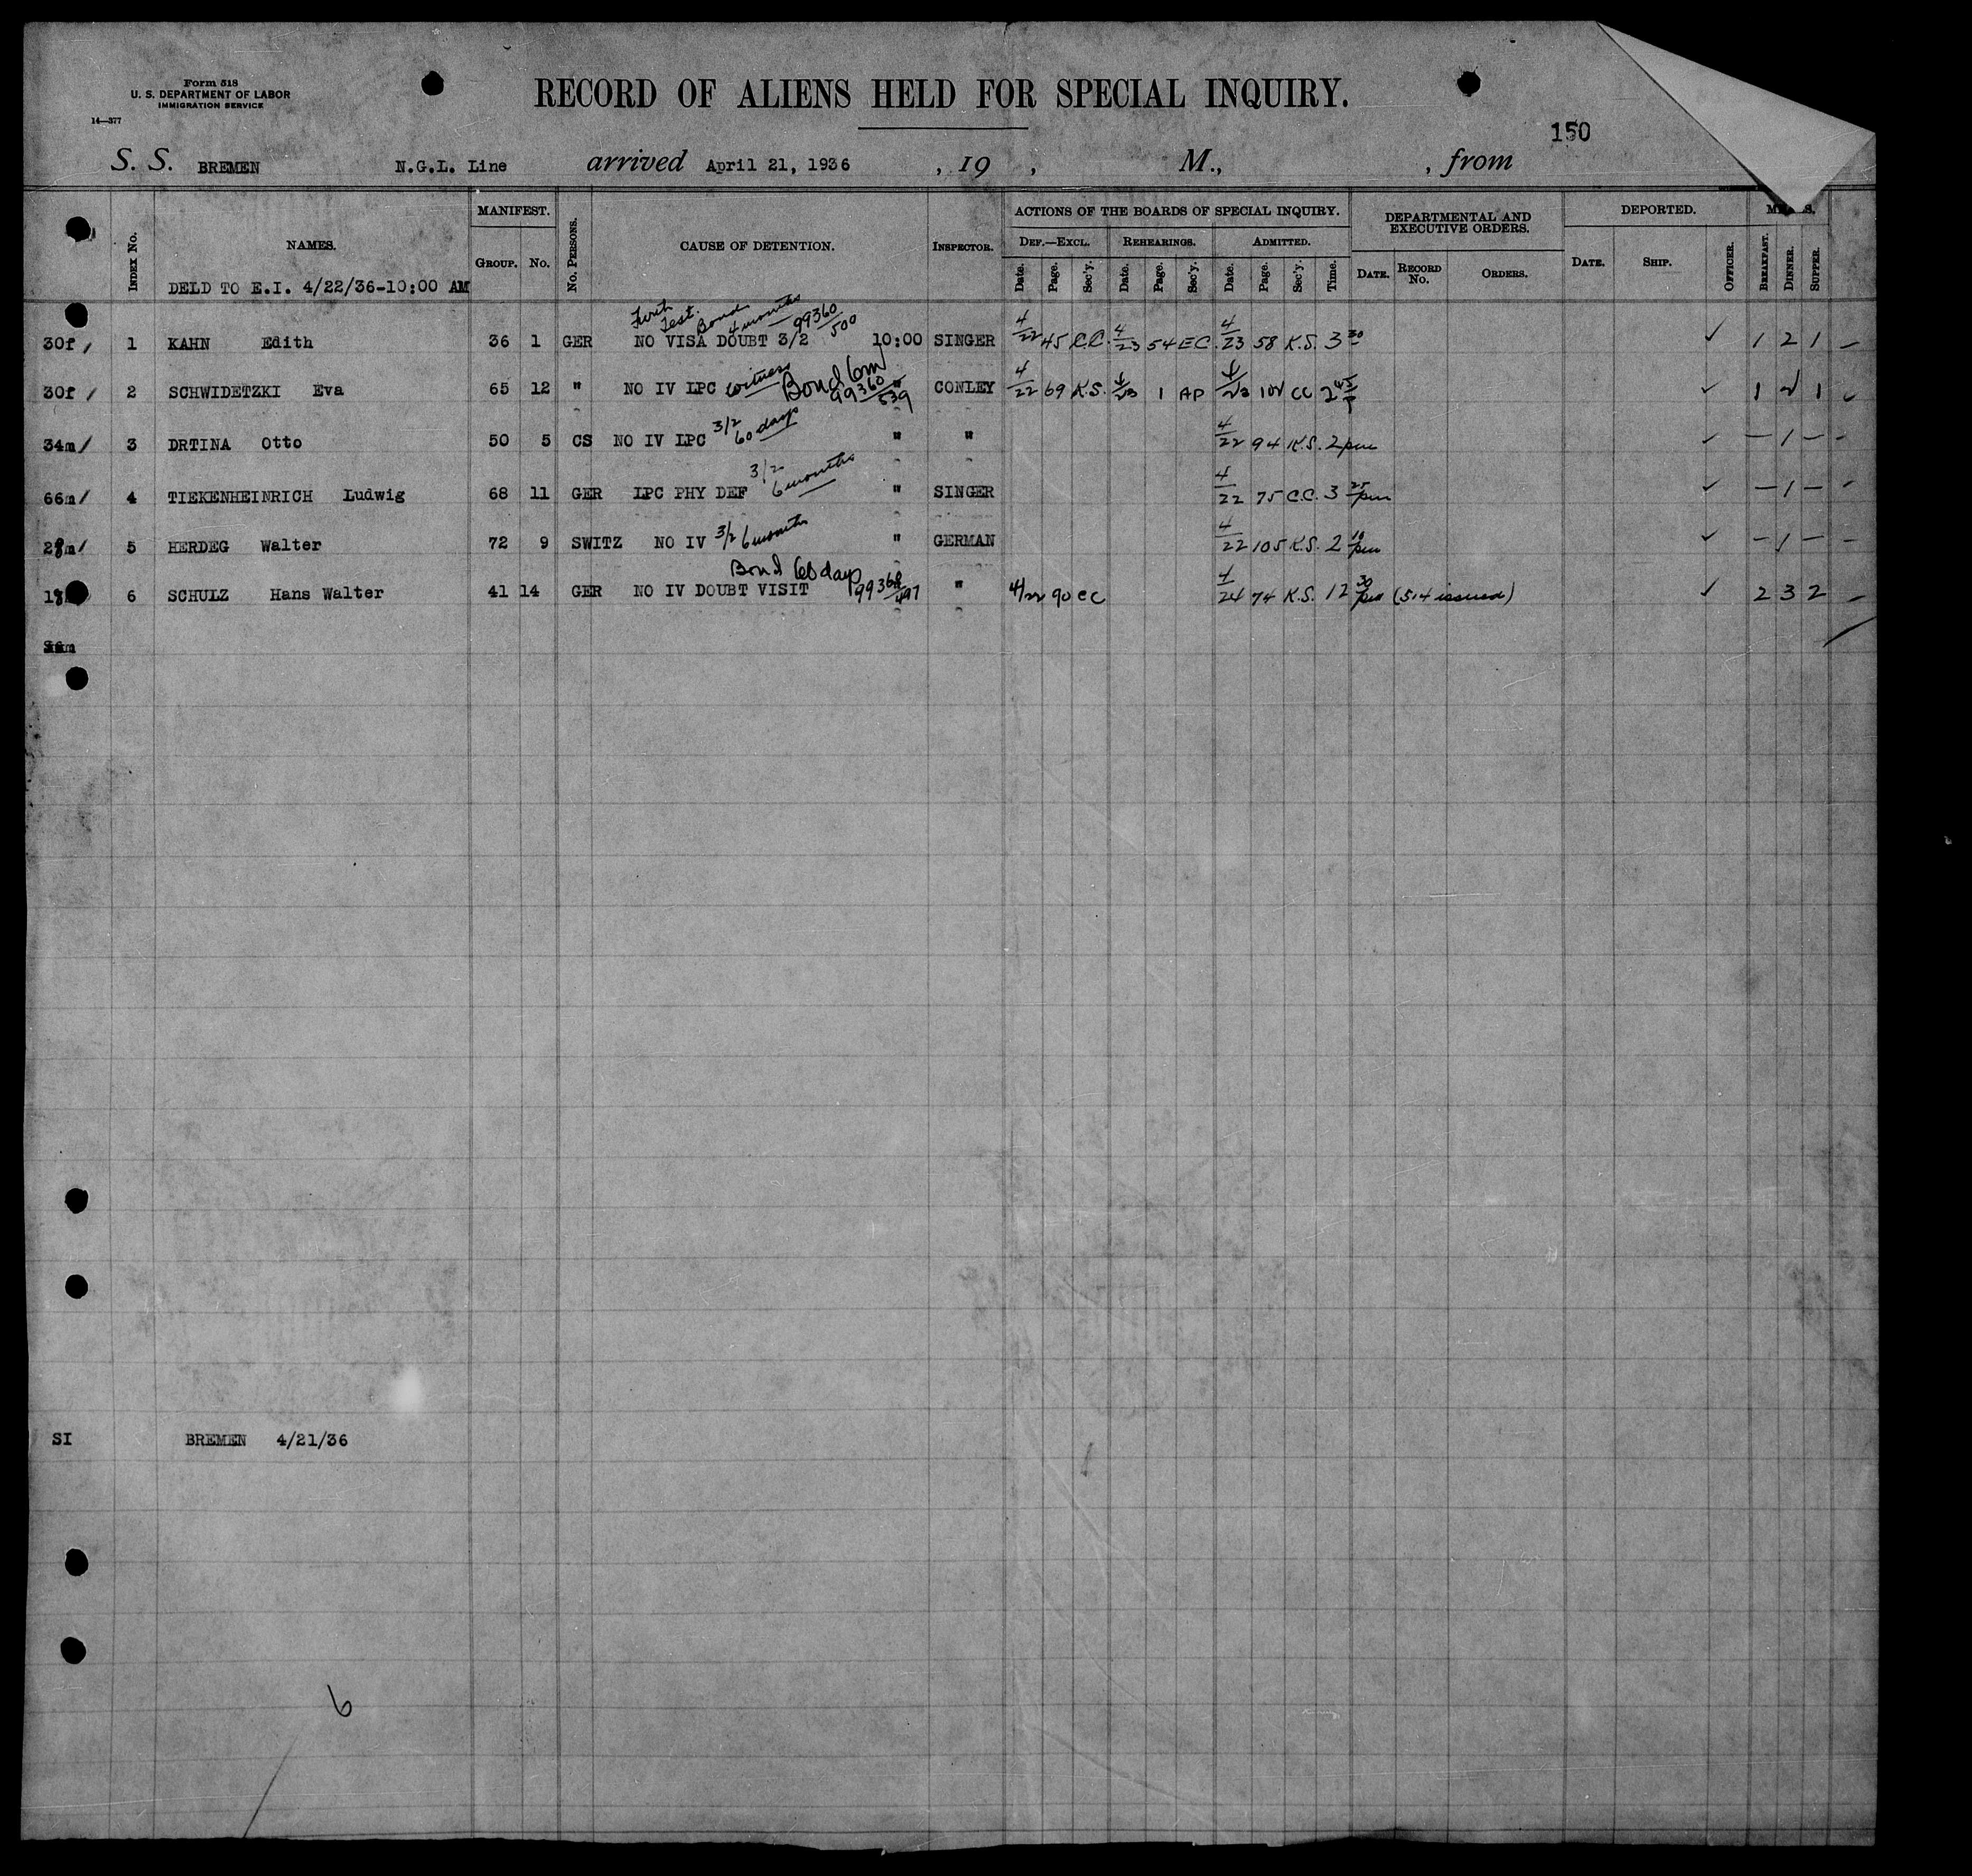 Form 518
U. S. DEPARTMENT OF LABOR
IMMIGRATION SERVICE
14—377
RECORD OF ALIENS HELD FOR SPECIAL INQUIRY.
150
S. S. BREMEN N.G.L. Line arrived April 21, 1936 , 19 , M., , from
INDEX No. NAMES. MANIFEST. GROUP. No. No. PERSONS. CAUSE OF DETENTION. INSPECTOR. ACTIONS OF THE BOARDS OF SPECIAL INQUIRY. DEPARTMENTAL AND EXECUTIVE ORDERS. DEPORTED.
DEF.—EXCL. REHEARINGS. ADMITTED.
Date. Page. Sec'y. Date. Page. Sec'y. Date. Page. Sec'y. Time. DATE. RECORD No. ORDERS. DATE. SHIP. OFFICER. BREAKFAST. DINNER. SUPPER.
DELD TO E.I. 4/22/36-10:00 AM
Test. Bond 4 months 99360/500
30f / 1 KAHN Edith 36 1 GER NO VISA DOUBT 3/2 10:00 SINGER 4/22 45 C.C. 4/23 54 EC. 4/23 58 K.S. 3 30 ✓ 1 2 1 —
30f / 2 SCHWIDETZKI Eva 65 12 " NO IV LPC witness Bond 6m 99360/539 " CONLEY 4/22 69 K.S. 4/23 1 AP 4/23 102 CC 2 45 P ✓ 1 2 1
34m/ 3 DRTINA Otto 50 5 CS NO IV LPC 3/2 60 days " " 4/22 94 K.S. 2 pm ✓ — 1 — -
66m/ 4 TIEKENHEINRICH Ludwig 68 11 GER LPC PHY DEF 3/2 6 months " SINGER 4/22 75 C.C. 3 25 pm ✓ — 1 — -
5 HERDEG Walter 72 9 SWITZ NO IV 3/2 6 months " GERMAN 4/22 105 K.S. 2 10 pm ✓ — 1 — -
Bond 60 days
6 SCHULZ Hans Walter 41 14 GER NO IV DOUBT VISIT " " 4/22 90 CC 4/24 74 K.S. 12 30 pm (514 issued) ✓ 2 3 2 —
SI BREMEN 4/21/36
6